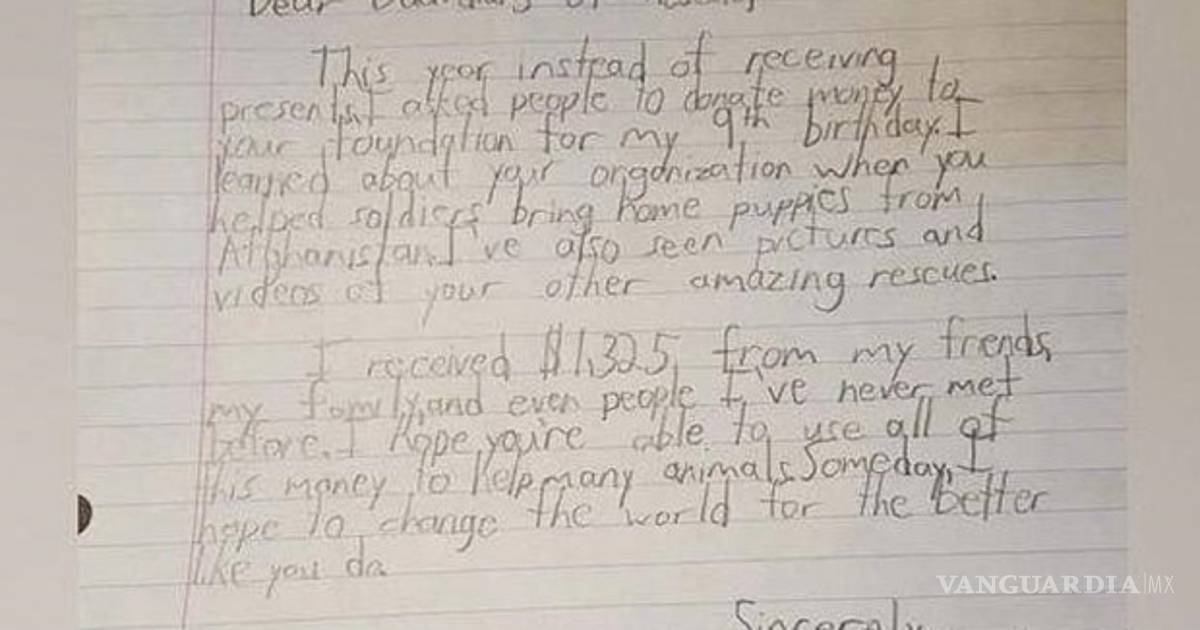 Dear Guardians of Rescue,
This year instead of receiving
presents, I asked people to donate money to
your foundation for my 9th birthday. I
learned about your organization when you
helped soldiers bring home puppies from
Afghanistan. I've also seen pictures and
videos of your other amazing rescues.
I received $1,325 from my frends,
my family, and even people I've never met
before. I hope you're able to use all of
this money to help many animals. Someday, I
hope to change the world for the better
like you do.
VANGUARDIA|MX
Sincerely